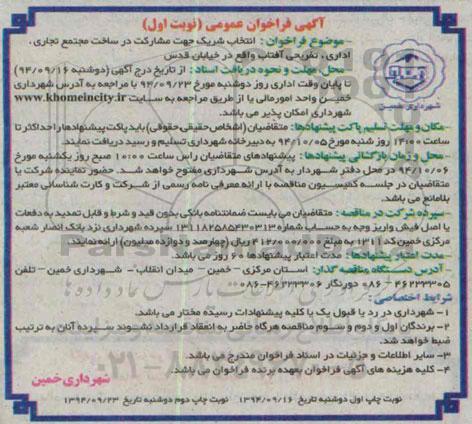 آگهی فراخوان عمومی (نوبت اول)
موضوع فراخوان : انتخاب شریک جهت مشارکت در ساخت مجتمع تجاری،
اداری، تفریحی آفتاب واقع در خیابان قدس
محل مهلت و نحوه دریافت اسناد : از تاریخ درج آگهی (دوشنبه ۹۴/۰۹/۱۶)
تا پایان وقت اداری روز دوشنبه مورخ ۹۴/۰۹/۲۳ با مراجعه به آدرس شهرداری
خمین واحد امورمالی یا از طریق مراجعه به سایت www.khomeincity.ir
شهرداری امکان پذیر می باشد.
شهرداری خمین
مکان و مهلت تسلیم پاکت پیشنهادها: متقاضیان (اشخاص حقیقی حقوقی) باید پاکت پیشنهادها را حداکثر تا
ساعت ۱۴:۰۰ روز شنبه مورخ ۹۴/۱۰/۰۵ به دبیرخانه شهرداری تسلیم و رسید دریافت نمایند.
محل و زمان بازگشائی پیشنهادها: پیشنهادهای متقاضیان راس ساعت ۱۰:۰۰ صبح روز یکشنبه مورخ
۹۴/۱۰/۰۶ در محل دفتر شهردار به آدرس شهرداری مفتوح خواهد شد. حضور نماینده شرکت یا
متقاضیان در جلسه کمیسیون مناقصه با ارائه معرفی نامه رسمی از شرکت و کارت شناسائی معتبر
بلامانع می باشد.
سپرده شرکت در مناقصه : متقاضیان می بایست ضمانتنامه بانکی بدون قید و شرط و قابل تمدید به دفعات
یا اصل فیش واریز وجه به حساب شماره ۱۳۱۱۸۲۵۸۵۴۳۰۳۱۳ سپرده شهرداری نزد بانک انصار شعبه
مرکزی خمین کد ۱۳۱۱ به مبلغ ۴۱۲/۰۰۰/۰۰۰ ریال (چهارصد و دوازده میلیون) ارائه نمایند.
مدت اعتبار پیشنهادها : مدت اعتبار پیشنهادها ۶۰ روز می باشد.
آدرس دستگاه مناقصه گذار: استان مرکزی – خمین – میدان انقلاب – شهرداری خمین – تلفن
۴۶۲۲۳۳۰۵–۰۸۶ دورنگار ۴۶۲۲۳۳۰۶–۰۸۶
شرایط اختصاصی :
۱– شهرداری در رد یا قبول یک یا کلیه پیشنهادات رسیده مختار می باشد.
۲– برندگان اول و دوم و سوم مناقصه هرگاه حاضر به انعقاد قرارداد نشوند سپرده آنان به ترتیب
ضبط خواهد شد.
۳– سایر اطلاعات و جزئیات در اسناد فراخوان مندرج می باشد.
۴– کلیه هزینه های آگهی فراخوان بعهده برنده فراخوان می باشد.
شهرداری خمین
نوبت چاپ اول دوشنبه تاریخ ۱۳۹۴/۰۹/۱۶ نوبت چاپ دوم دوشنبه تاریخ ۱۳۹۴/۰۹/۲۳